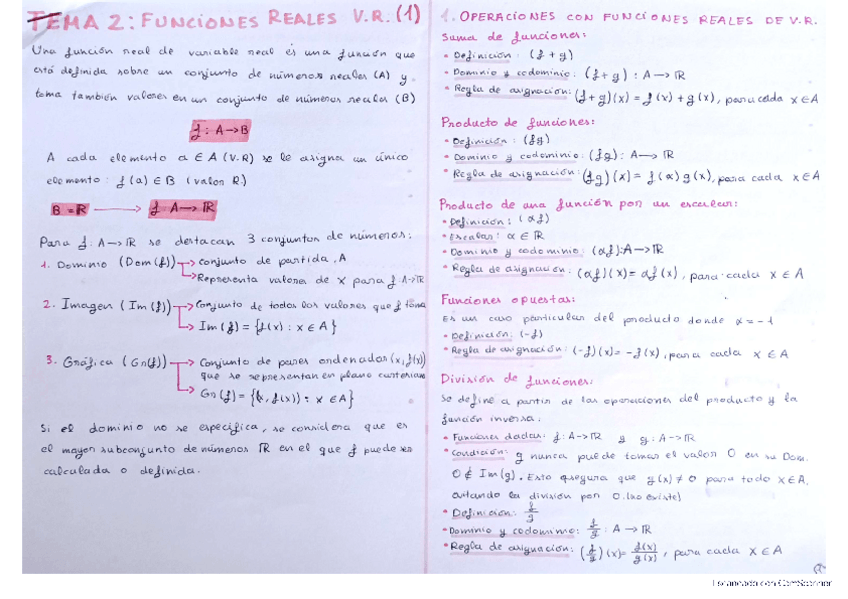 TEMA 2: FUNCIONES REALES V.R. (1)
Una función real de variable real es una función que
está definida sobre un conjunto de números reales (A) y
toma también valores en un conjunto de números reales (B)
f: A→B
A cada elemento a ∈ A (V.R) se le asigna un único
elemento: f(a) ∈ B (valor R.)
B = R → f: A→ℝ
Para f: A→ℝ se destacan 3 conjuntos de números:
1. Dominio (Dom(f)) → conjunto de partida, A
→ Representa valores de x para f: A→ℝ
2. Imagen (Im(f)) → Conjunto de todos los valores que f toma
→ Im(f) = {f(x) : x ∈ A}
3. Gráfica (Gr(f)) → Conjunto de pares ordenados (x, f(x))
que se representan en plano cartesiano
→ Gr(f) = {(x, f(x)) : x ∈ A}
Si el dominio no se especifica, se considera que es
el mayor subconjunto de números ℝ en el que f puede ser
calculada o definida.
1. OPERACIONES CON FUNCIONES REALES DE V.R.
Suma de funciones:
• Definición: (f + g)
• Dominio y codominio: (f + g) : A → ℝ
• Regla de asignación: (f + g)(x) = f(x) + g(x), para cada x ∈ A
Producto de funciones:
• Definición: (fg)
• Dominio y codominio: (fg) : A → ℝ
• Regla de asignación: (fg)(x) = f(x) g(x), para cada x ∈ A
Producto de una función por un escalar:
• Definición: (αf)
• Escalar: α ∈ ℝ
• Dominio y codominio: (αf): A → ℝ
• Regla de asignación: (αf)(x) = αf(x), para cada x ∈ A
Funciones opuestas:
Es un caso particular del producto donde α = -1
• Definición: (-f)
• Regla de asignación: (-f)(x) = -f(x), para cada x ∈ A
División de funciones:
Se define a partir de las operaciones del producto y la
función inversa.
• Funciones dadas: f: A→ℝ y g: A→ℝ
• Condición: g nunca puede tomar el valor 0 en su Dom.
0 ∉ Im(g). Esto asegura que g(x) ≠ 0 para todo x ∈ A,
evitando la división por 0. (no existe)
• Definición: f/g
• Dominio y codominio: f/g : A → ℝ
• Regla de asignación: (f/g)(x) = f(x)/g(x), para cada x ∈ A
Escaneado con CamScanner